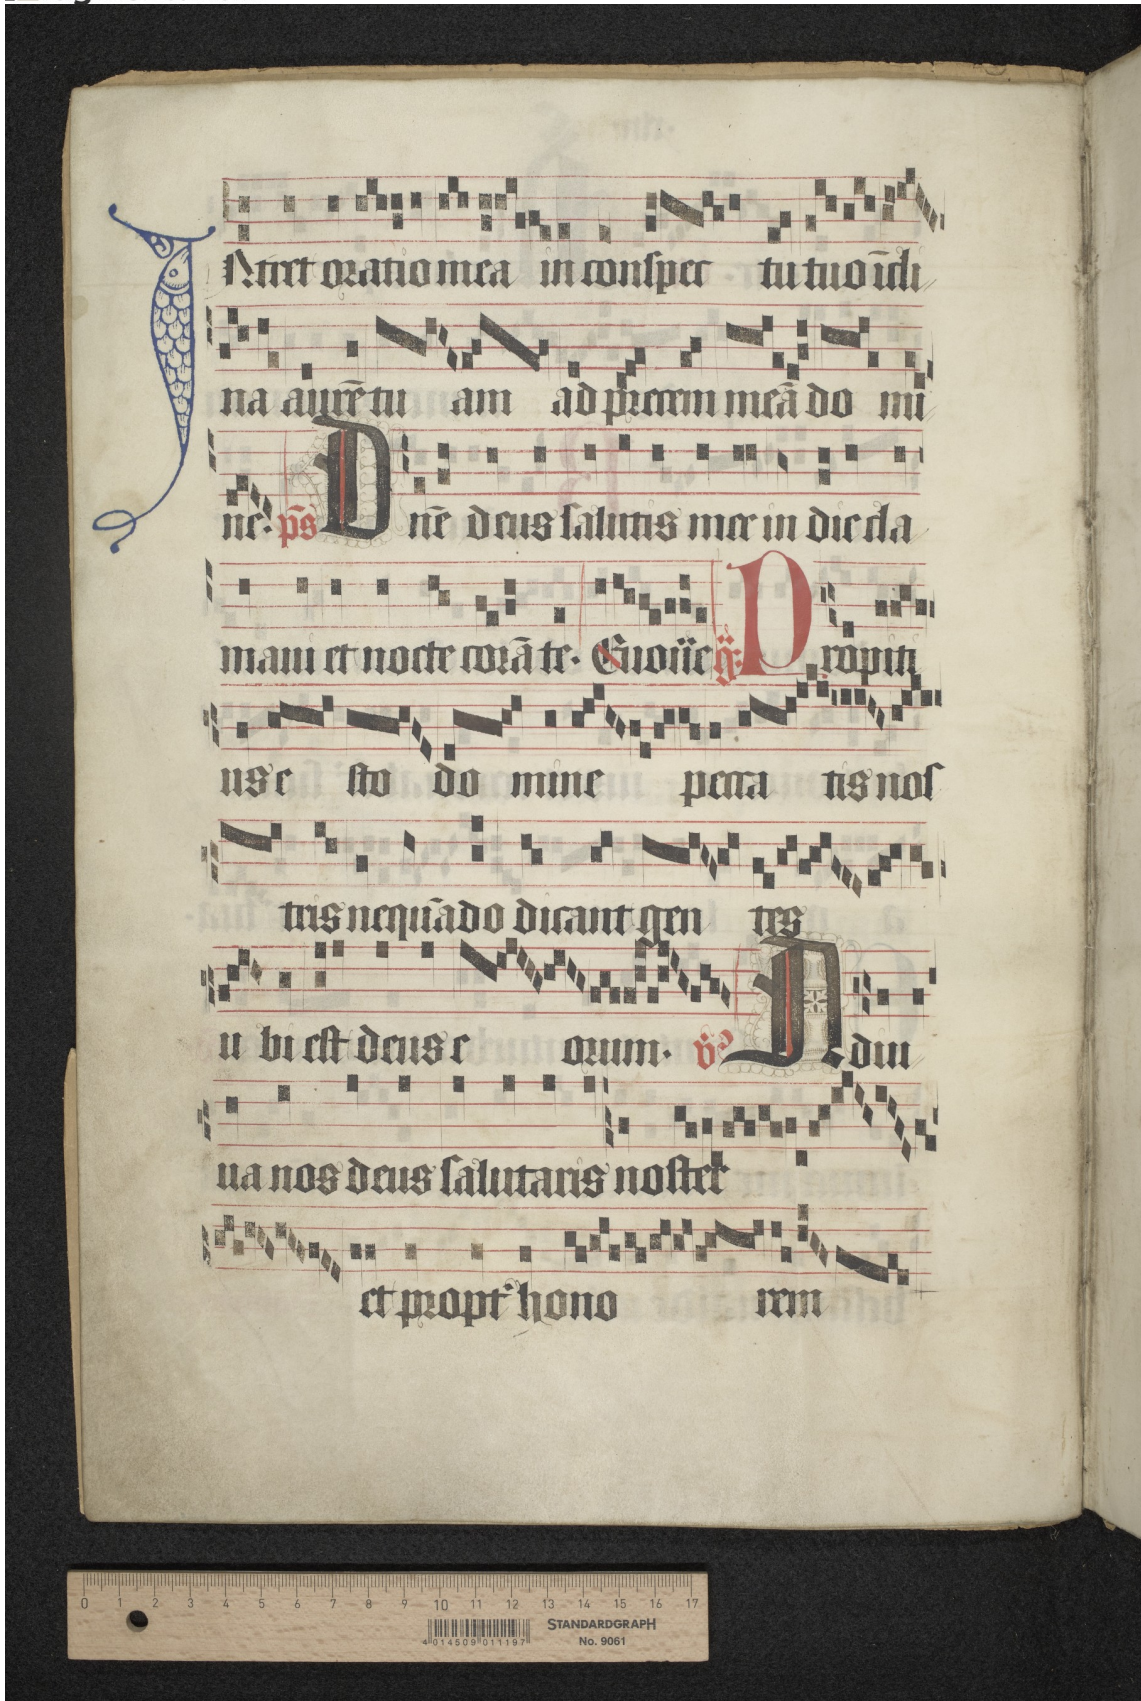 Intret oratio mea in conspec tu tuo īcli
na aurē tu am ad precem meā do mi
ne. ps̄ Dn̄e deus salutis mee in die cla
maui et nocte corā te. Euoūe gͣ: Propiti
us e sto do mine pecca tis nos
tris nequādo dicant gen tes
u bi est deus e orum. v̄ Adiu
ua nos deus salutaris noster
et propt᷑ hono rem
0 1 2 3 4 5 6 7 8 9 10 11 12 13 14 15 16 17
STANDARDGRAPH
4 014509 011197
No. 9061